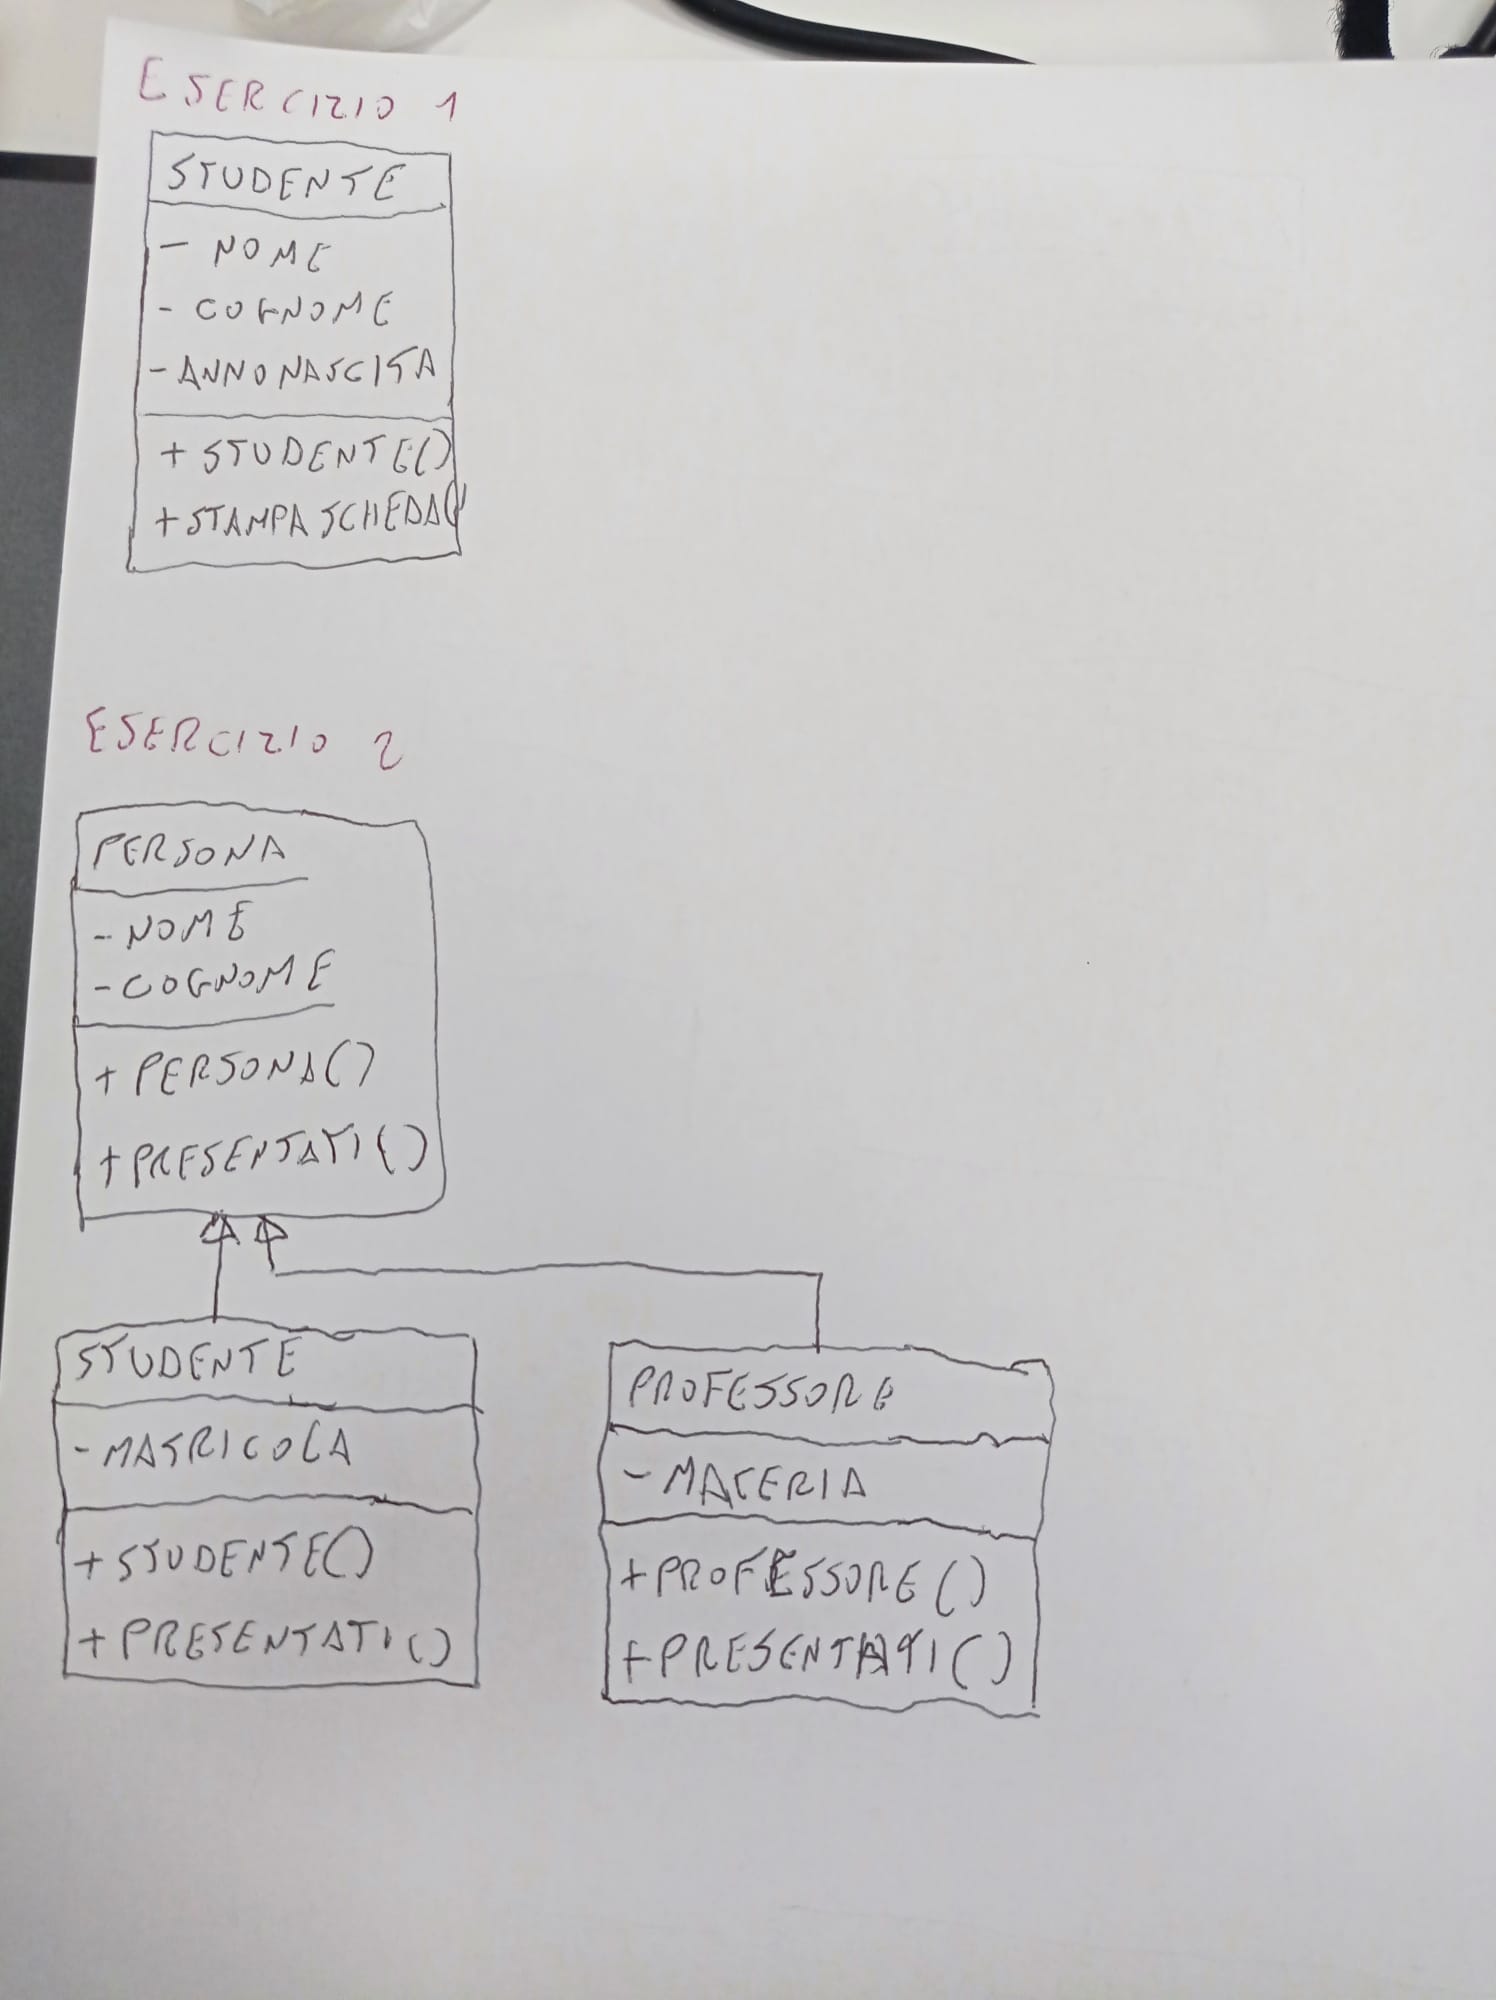 ESERCIZIO 1
STUDENTE
- NOME
- COGNOME
- ANNONASCITA
+ STUDENTE()
+ STAMPASCHEDA()
ESERCIZIO 2
PERSONA
- NOME
- COGNOME
+ PERSONA()
+ PRESENTATI()
STUDENTE
- MATRICOLA
+ STUDENTE()
+ PRESENTATI()
PROFESSORE
- MATERIA
+ PROFESSORE()
+ PRESENTATI()